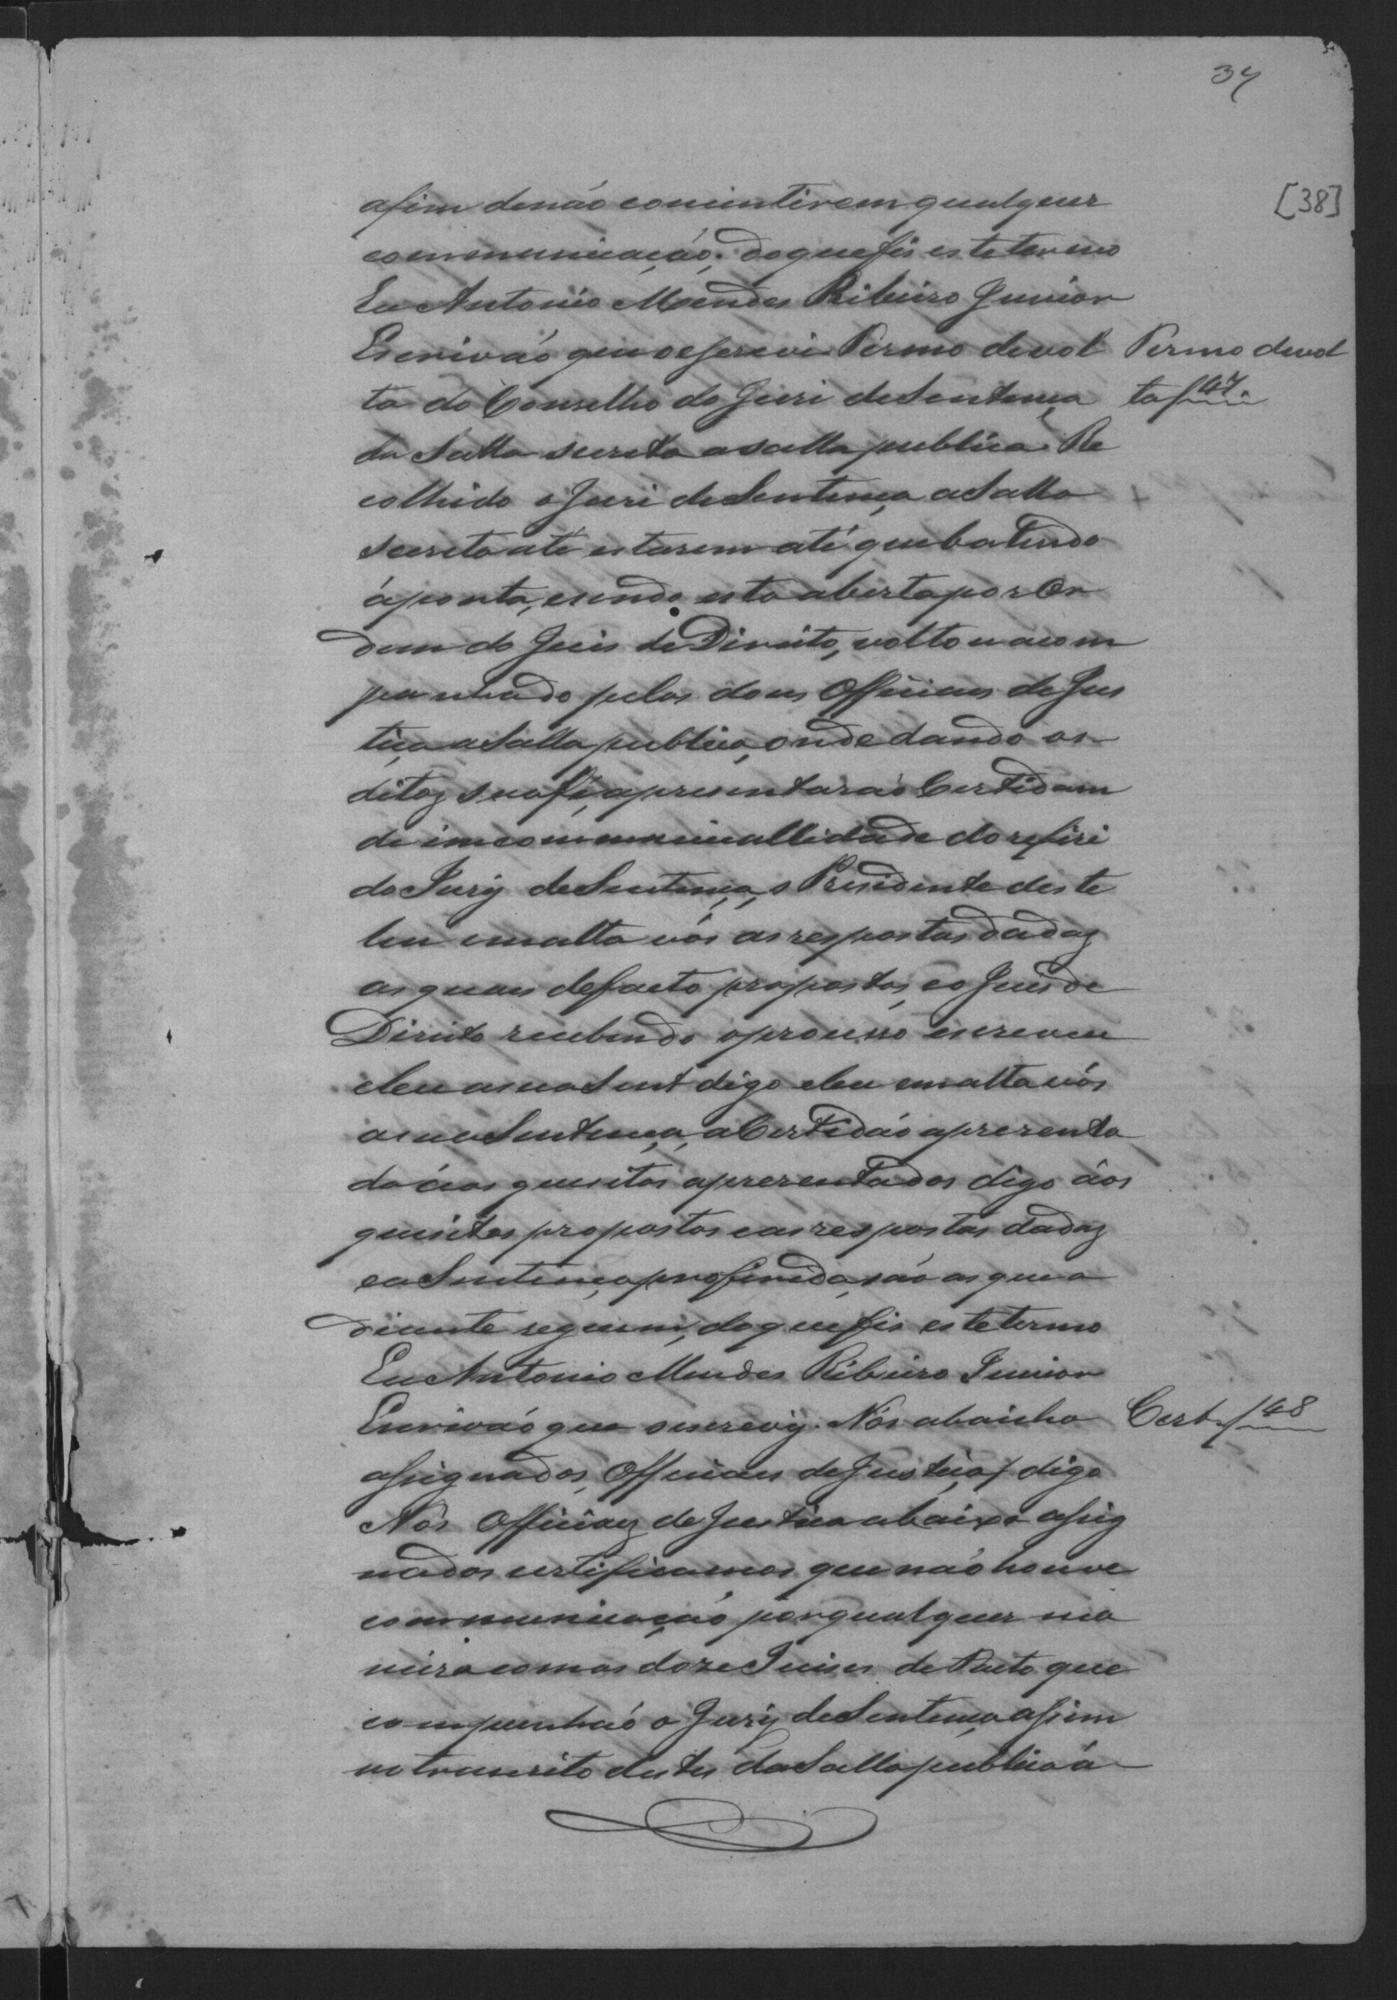 37
[38]
afim de não concintirem qualquer
communicação. do que fis este termo
Eu Antonio Mendes Ribeiro Junior
Escrivão que oescrevi Termo devol
Termo devol
ta do Conselho do Juri de Sentença
ta f 47
da Salla secreta a salla publica. Re
colhido o Juri de Sentença a Salla
secreta ate estarem até que batendo
á porta, e sendo esta aberta por Or
dem do Juis de Direito, voltou acom
panhado pelos dous Officiaes de Jus
tiça a Salla publica, onde dando os
ditos sua fé, apresentarão Certidam
de imcommunicallidade do refiri
do Jury de Sentença, o Presidente deste
leu em alta vós as respostas dadas
as quais de facto propostos, e o Juis de
Direito recebendo o processo escreveu
e leu a sua Sent digo e leu em alta vós
a sua Sentença, a Certidão apresenta
da é aos quisitos aprezentados digo aos
quisitos propostos e as respostas dadas
e a Sentença proferida, são as que a
diante seguem, do que fis este termo
Eu Antonio Mendes Ribeiro Junior
Escrivão que oscrevy. Nós abaicho
Cert. f 48
assignados, Officiaes de Justiça / digo
Nós Officiaes de Justiça abaixo assig
nados certificamos que não houve
communicação por qualquer ma
neira com os doze Juises de Facto que
compunhão o Jury de Sentença assim
no transito destes da Salla publica á